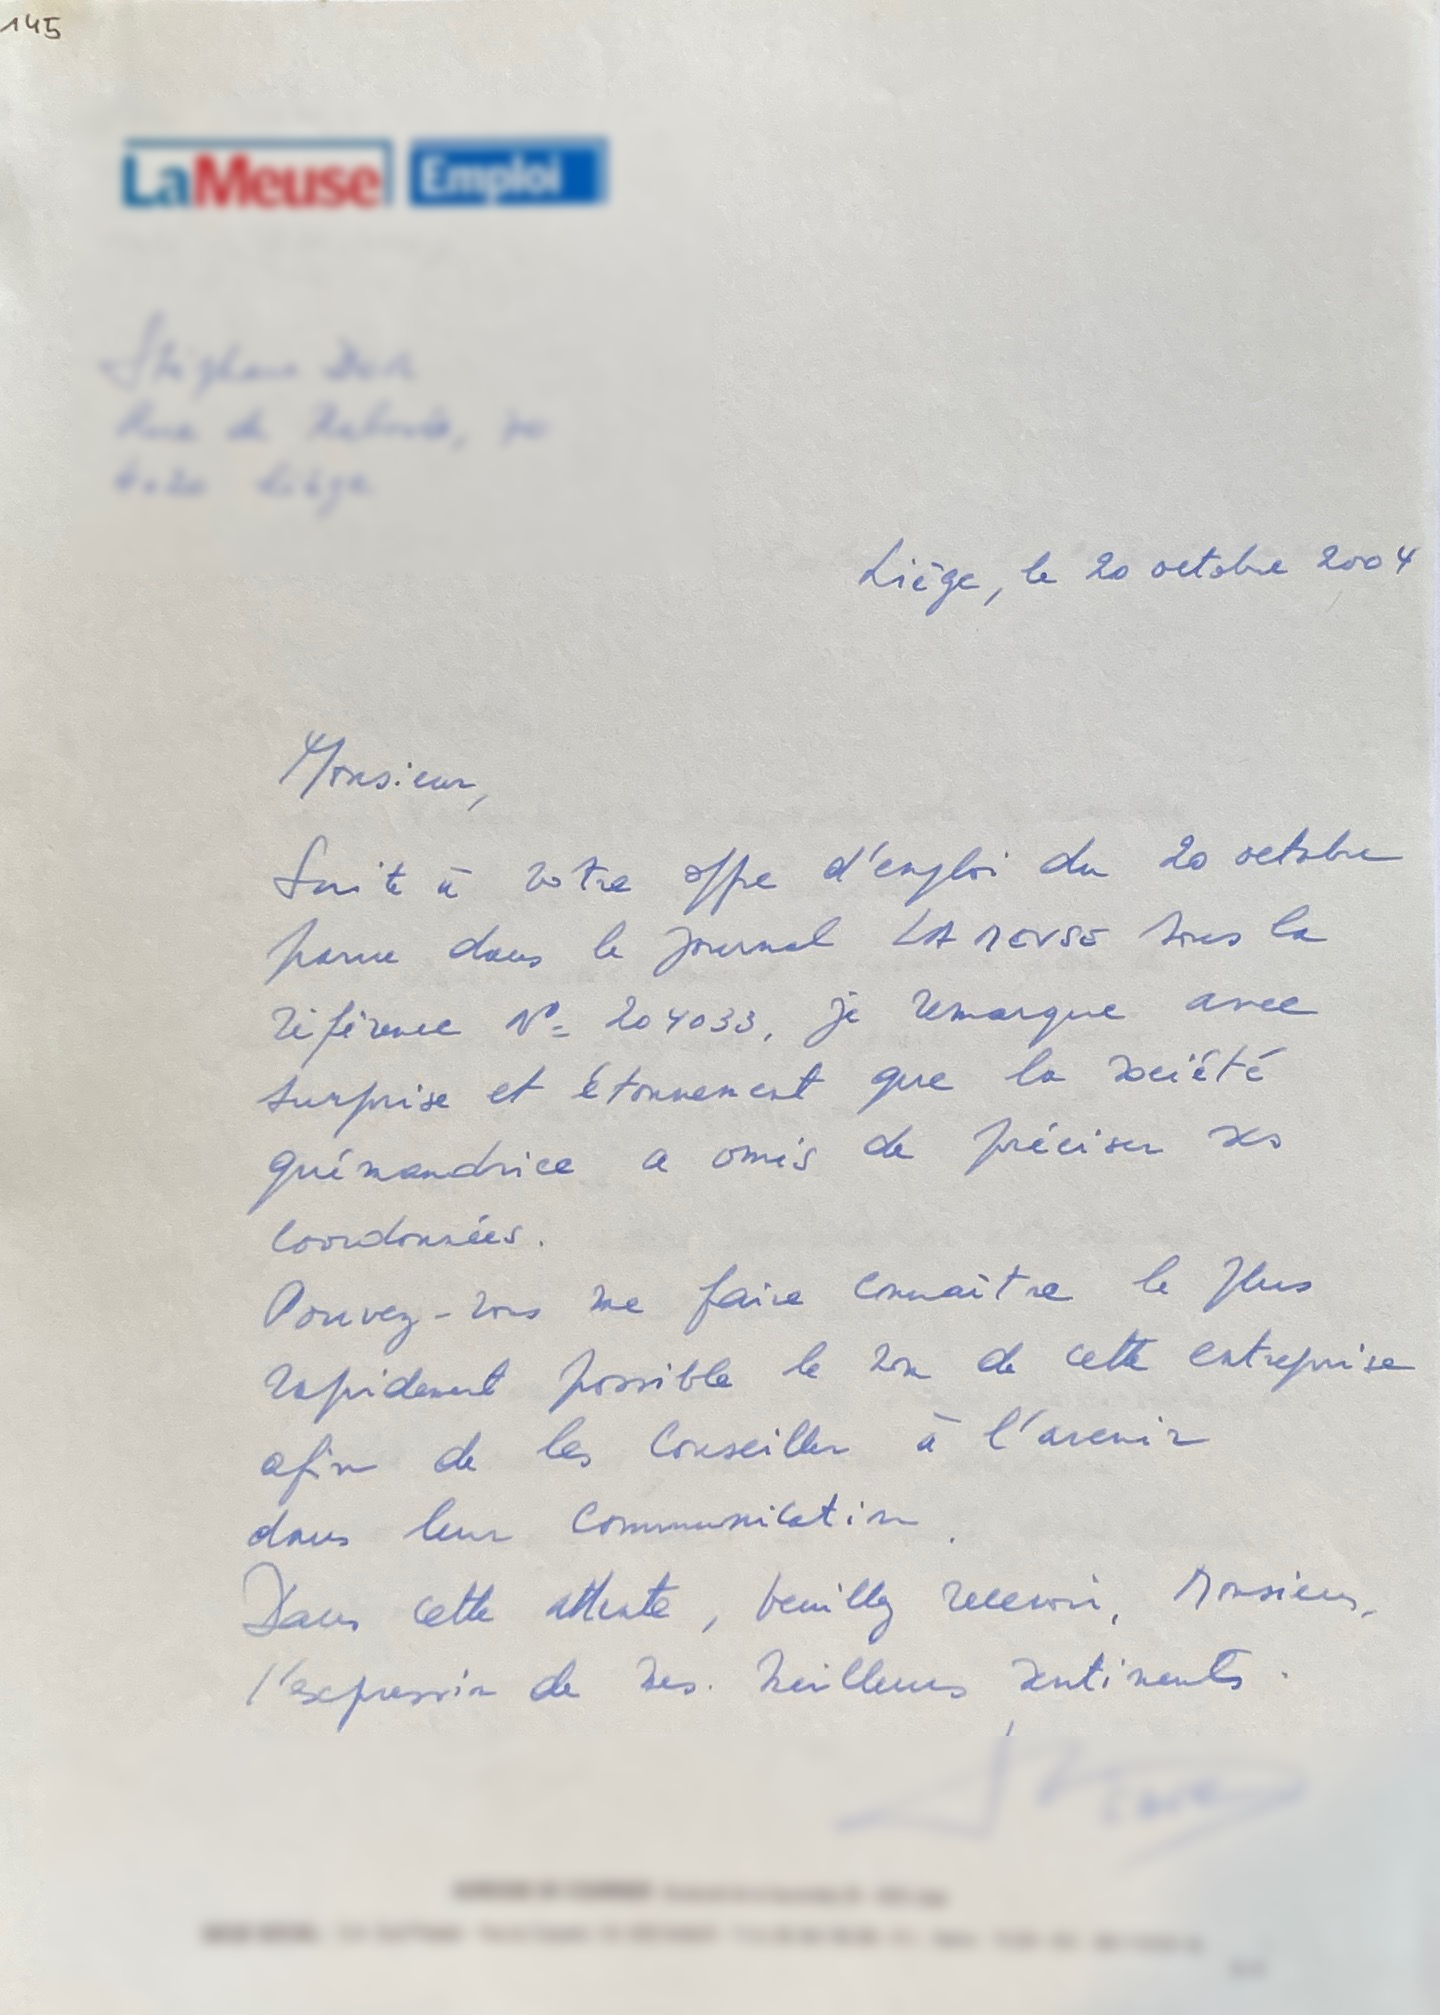 145
LaMeuse Emploi
4020 Liège
Liège, le 20 octobre 2004
Monsieur,
Suite à votre offre d'emploi du 20 octobre
parue dans le journal LA MEUSE sous la
référence N° 204033, je remarque avec
surprise et étonnement que la société
quémandrice a omis de préciser ses
coordonnées.
Pouvez-vous me faire connaître le plus
rapidement possible le nom de cette entreprise
afin de les conseiller à l'avenir
dans leur communication.
Dans cette attente, veuillez recevoir, Monsieur,
l'expression de mes meilleurs sentiments.